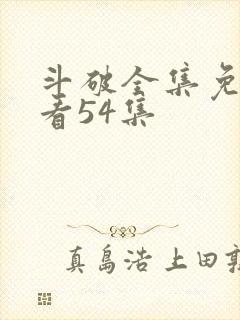 斗破全集免
看54集
真島浩上田